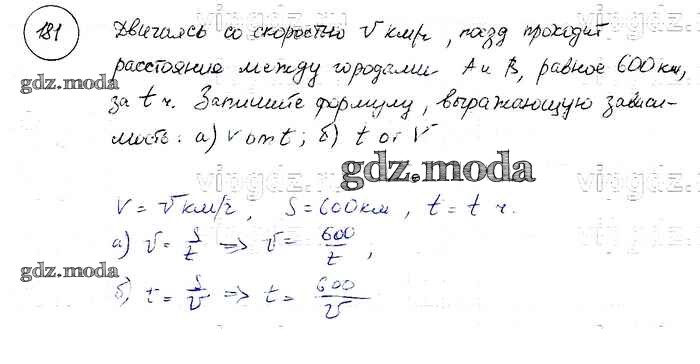 181
Двигаясь со скоростью v км/ч, поезд проходит
расстояние между городами А и В, равное 600 км,
за t ч. Запишите формулу, выражающую зависи-
мость: а) v от t; б) t от v
gdz.moda
gdz.moda
V = v км/ч, S = 600 км, t = t ч.
а) v = S/t => v = 600/t;
gdz.moda
б) t = S/v => t = 600/v